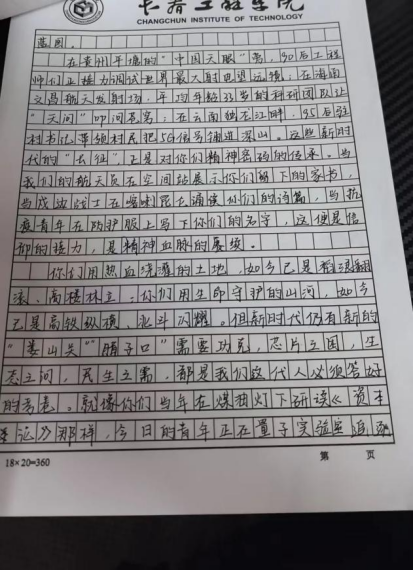 长春工程学院
CHANGCHUN INSTITUTE OF TECHNOLOGY
蓝图。
在贵州平塘的“中国天眼”旁,90后工程
师们正接力调试世界最大射电望远镜;在海南
文昌航天发射场,平均年龄33岁的科研团队让
“天问”叩问苍穹;在云南独龙江畔,95后驻
村书记带领村民把5G信号铺进深山。这些新时
代的“长征”,正是对你们精神密码的传承。当
我们的航天员在空间站展示你们留下的家书,
当戍边战士在喀喇昆仑诵读你们的诗篇,当抗
疫青年在防护服上写下你们的名字,这便是信
仰的接力,是精神血脉的赓续。
你们用热血浇灌的土地,如今已是稻浪翻
滚、高楼林立;你们用生命守护的山河,如今
已是高铁纵横、北斗闪耀。但新时代仍有新的
“娄山关”“腊子口”需要攻克,芯片之困,生
态之问,民生之需,都是我们这代人必须答好
的考卷。就像你们当年在煤油灯下研读《资本
论》那样,今日的青年正在量子实验室追逐
18×20=360
第 页